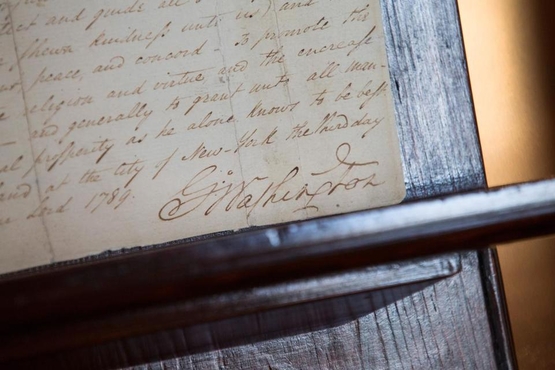 ect and guide all
shewn kindneſs unto us) and
peace, and concord - To promote the
eligion and virtue and the encrease
and generally to grant unto all man-
al prosperity as he alone knows to be best
and at the city of New-York the third day
Lord 1789.
Go: Washington